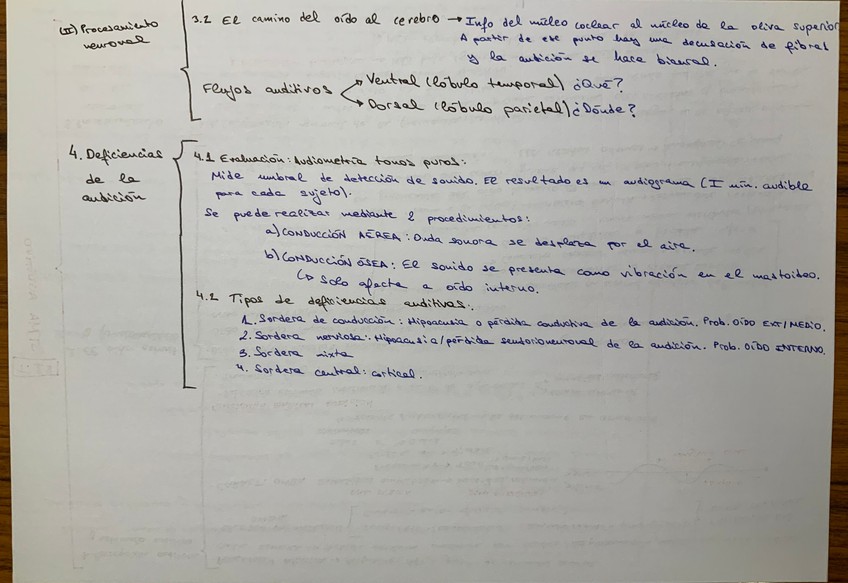 (II) Procesamiento
neuronal
3.2 El camino del oído al cerebro → Info del núcleo coclear al núcleo de la oliva superior
A partir de ese punto hay una decusación de fibras
y la audición se hace biaural.
Flujos auditivos
Ventral (lóbulo temporal) ¿Qué?
Dorsal (lóbulo parietal) ¿Dónde?
4. Deficiencias
de la
audición
4.1 Evaluación: Audiometría tonos puros:
Mide umbral de detección de sonido. El resultado es un audiograma (I mín. audible
para cada sujeto).
Se puede realizar mediante 2 procedimientos:
a) CONDUCCIÓN AÉREA: Onda sonora se desplaza por el aire.
b) CONDUCCIÓN ÓSEA: El sonido se presenta como vibración en el mastoideo.
↳ Solo afecta a oído interno.
4.2 Tipos de deficiencias auditivas:
1. Sordera de conducción: Hipoacusia o pérdida conductiva de la audición. Prob. OÍDO EXT/MEDIO.
2. Sordera nerviosa: Hipoacusia/pérdida sensorioneuronal de la audición. Prob. OÍDO INTERNO.
3. Sordera mixta
4. Sordera central: cortical.